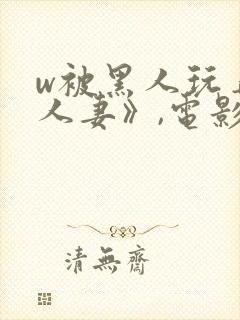 w被黑人玩
人妻》,電影
清無齋